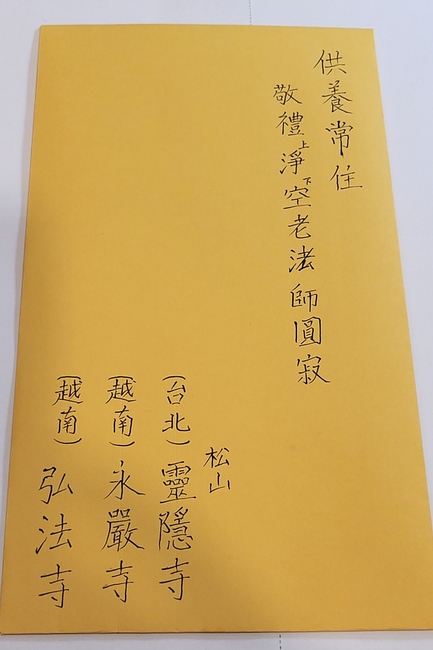 供養常住
敬禮上淨下空老法師圓寂
松山
(台北)靈隱寺
(越南)永嚴寺
(越南)弘法寺